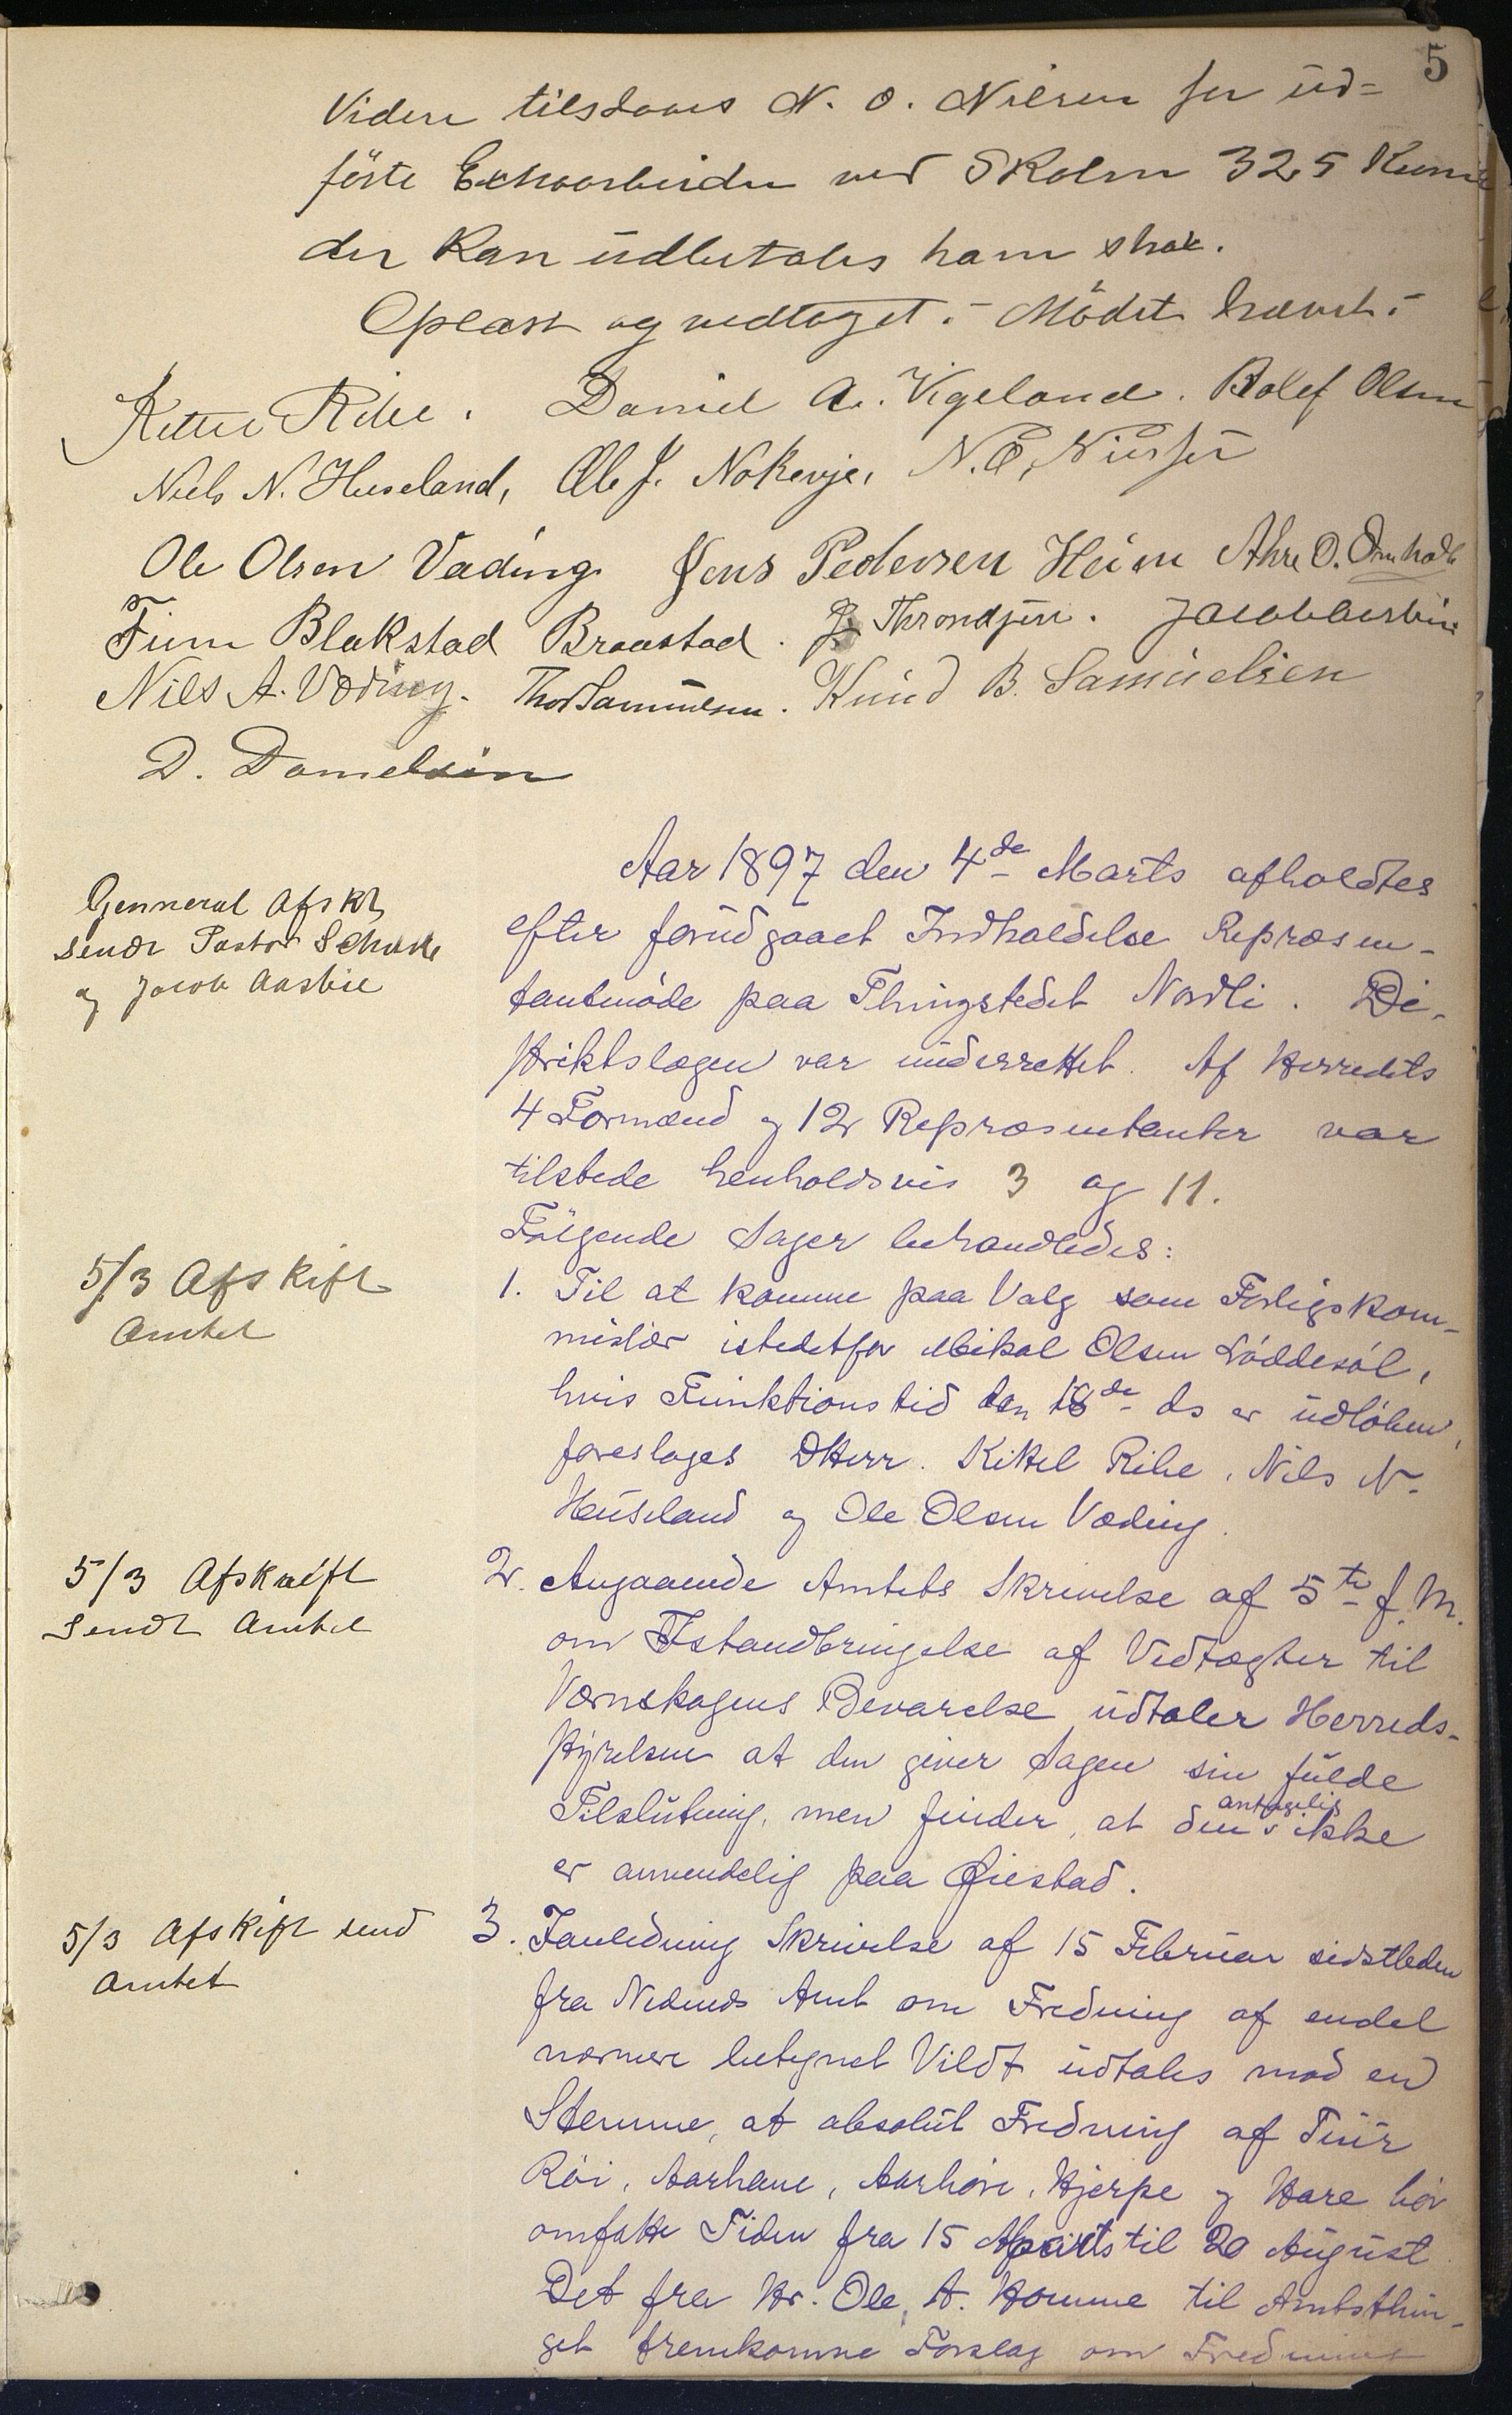 5
Videre tilstaaes N. O. Nilsen for ud=
förte Extraarbeider ved Skolen 325 Kroner
der kan udbetales ham strax.
Oplæst og vedtaget. - Mödet hævet. -
Kittel Ribe. Daniel A. Vigeland. Rolef Olsen
Niels N. Huseland, Ole J. Nokevje, N. O. Nielsen
Ole Olsen Væding Jens Pedersen Heim Ahre O. Omholt
Finn Blakstad Braastad. J. Throndsen. Jacob Aasbie
Nils A. Væding. Thor Samuelsen. Knud B. Samuelsen
D. Danielsen
Aar 1897 den 4de Marts afholdtes
efter forudgaaet Indkaldelse Repræsen-
tantmöde paa Thingstedet Nordli. Di-
striktslægen var underrettet. Af Herredets
4 Formænd og 12 Repræsentanter var
tilstede henholdsvis 3 og 11.
Fölgende Sager behandledes:
Genneral Afskr
sendt Pastor
og Jacob Aasbie
1. Til at komme paa Valg som Forligskom-
missær istedetfor Mikal Olsen Löddesöl,
hvis Funktionstid den 18de ds er udlöben,
foreslages DHerr. Kittel Ribe, Nils N.
Huseland og Ole Olsen Væding.
5/3 Afskrift
Amtet
2. Angaaende Amtets Skrivelse af 5te f. M.
om Istandbringelse af Vedtægter til
Værnskogens Bevarelse udtaler Herreds-
styrelsen at den giver Sagen sin fulde
Tilslutning, men finder, at den antagelig ikke
er anvendelig paa Øiestad.
5/3 Afskrift
Sendt Amtet
3. I anledning Skrivelse af 15 Februar sidstleden
fra Nedenes Amt om Fredning af endel
nærmere betegnet Vildt udtales mod en
Stemme, at absolut Fredning af Tiur
Röi, Aarhane, Aarhöne, Hjerpe og Hare bör
omfatte Tiden fra 15 Marts til 20 August.
Det fra Hr. Ole A. Homme til Amtsthin-
get fremkomne Forslag om Fredning
5/3 Afskrift send
Amtet